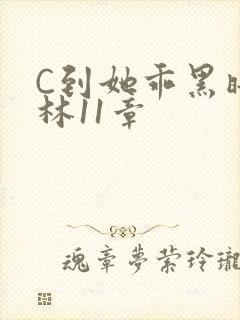 C到她乖黑时
林11章
魂章夢萦玲瓏